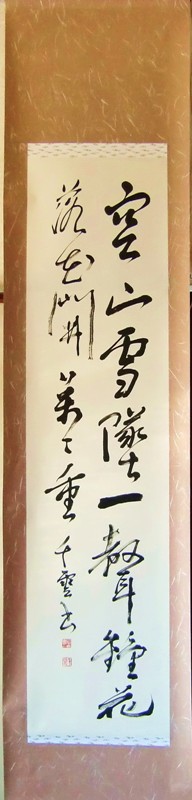 空山雪墜一聲鐘花
落花開萬々重
千書